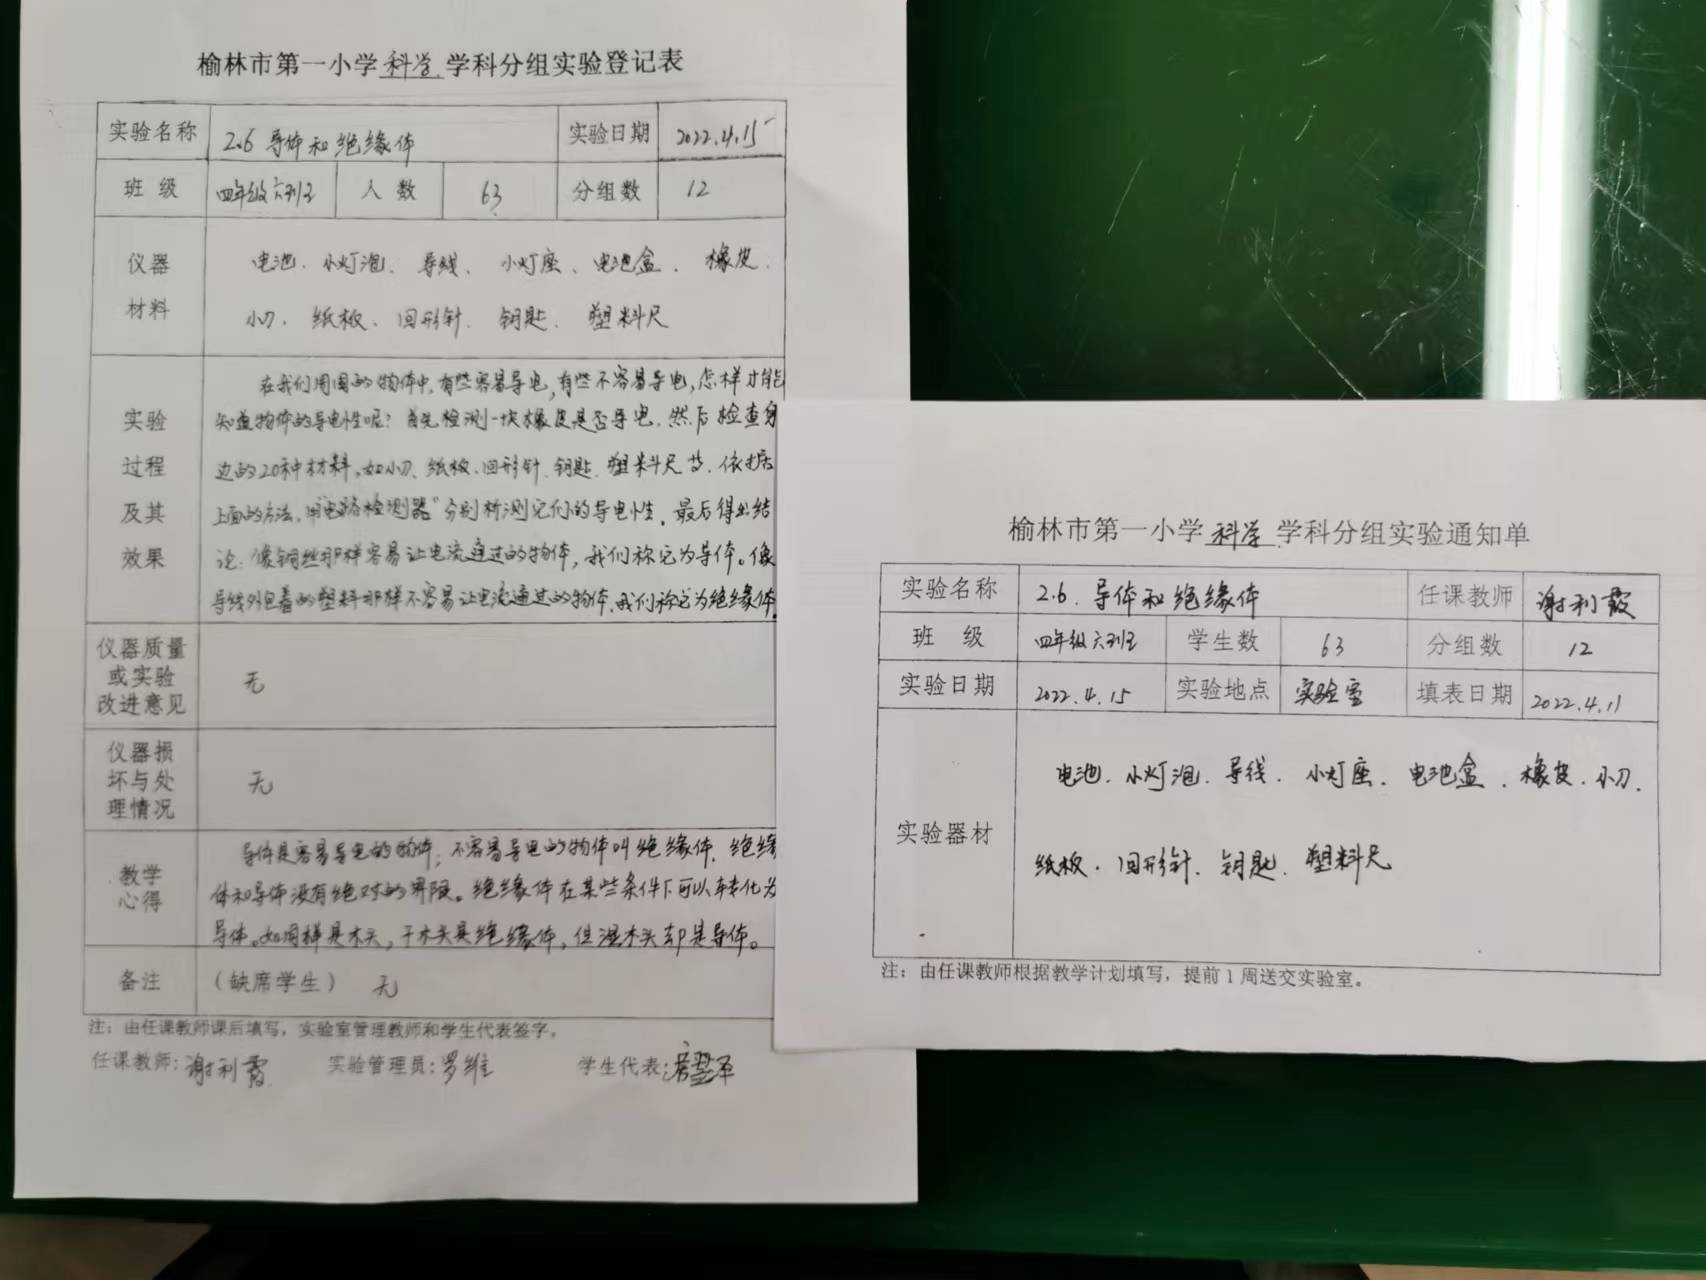 榆林市第一小学科学学科分组实验登记表
实验名称 2.6 导体和绝缘体 实验日期 2022.4.15
班 级 四年级六班 人 数 63 分组数 12
仪器材料
电池、小灯泡、导线、小灯座、电池盒、橡皮、
小刀、纸板、回形针、钥匙、塑料尺
实验过程及其效果
在我们周围的物体中,有些容易导电,有些不容易导电,怎样才能
知道物体的导电性呢?首先检测一块橡皮是否导电,然后检查身
边的20种材料,如小刀、纸板、回形针、钥匙、塑料尺等,依据
上面的方法,用“电路检测器”分别检测它们的导电性,最后得出结
论:像铜丝那样容易让电流通过的物体,我们称它为导体。像
导线外包着的塑料那样不容易让电流通过的物体,我们称它为绝缘体
仪器质量
或实验 无
改进意见
仪器损
坏与处 无
理情况
教学心得
导体是容易导电的物体;不容易导电的物体叫绝缘体,绝缘
体和导体没有绝对的界限。绝缘体在某些条件下可以转化为
导体。如同样是木头,干木头是绝缘体,但湿木头却是导体。
备注 (缺席学生) 无
注:由任课教师课后填写,实验室管理教师和学生代表签字。
任课教师:谢利霞 实验管理员:罗维 学生代表:
榆林市第一小学科学学科分组实验通知单
实验名称 2.6、导体和绝缘体 任课教师 谢利霞
班 级 四年级六班 学生数 63 分组数 12
实验日期 2022.4.15 实验地点 实验室 填表日期 2022.4.11
实验器材
电池、小灯泡、导线、小灯座、电池盒、橡皮、小刀、
纸板、回形针、钥匙、塑料尺
注:由任课教师根据教学计划填写,提前1周送交实验室。